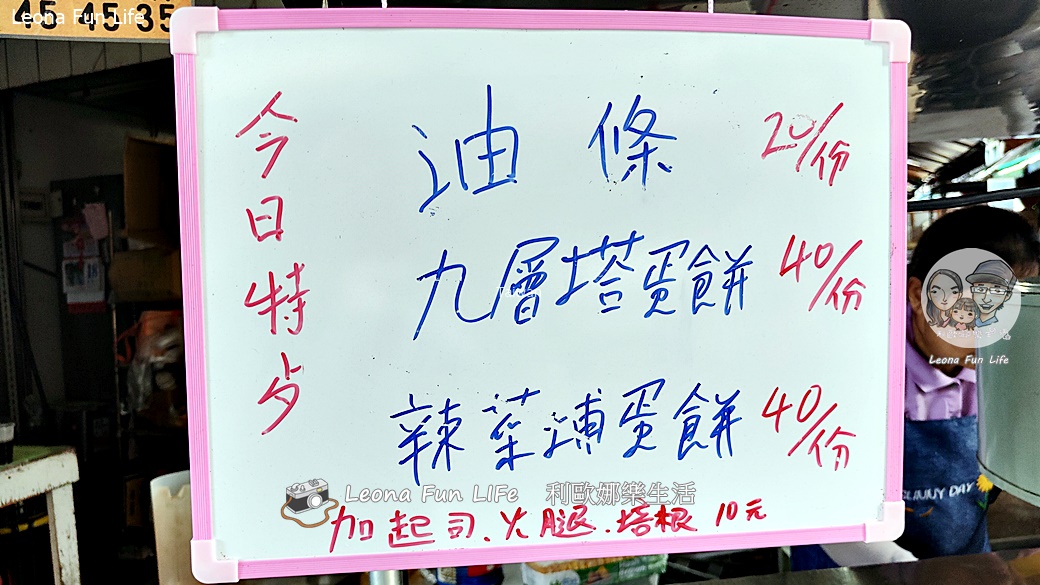 45 45 35
Leona Fun Life
今日特歺
油條 20/份
九層塔蛋餅 40/份
辣菜埔蛋餅 40/份
加起司.火腿.培根 10元
Leona Fun LIfe 利歐娜樂生活
Leona Fun Life
SUNNY DAY